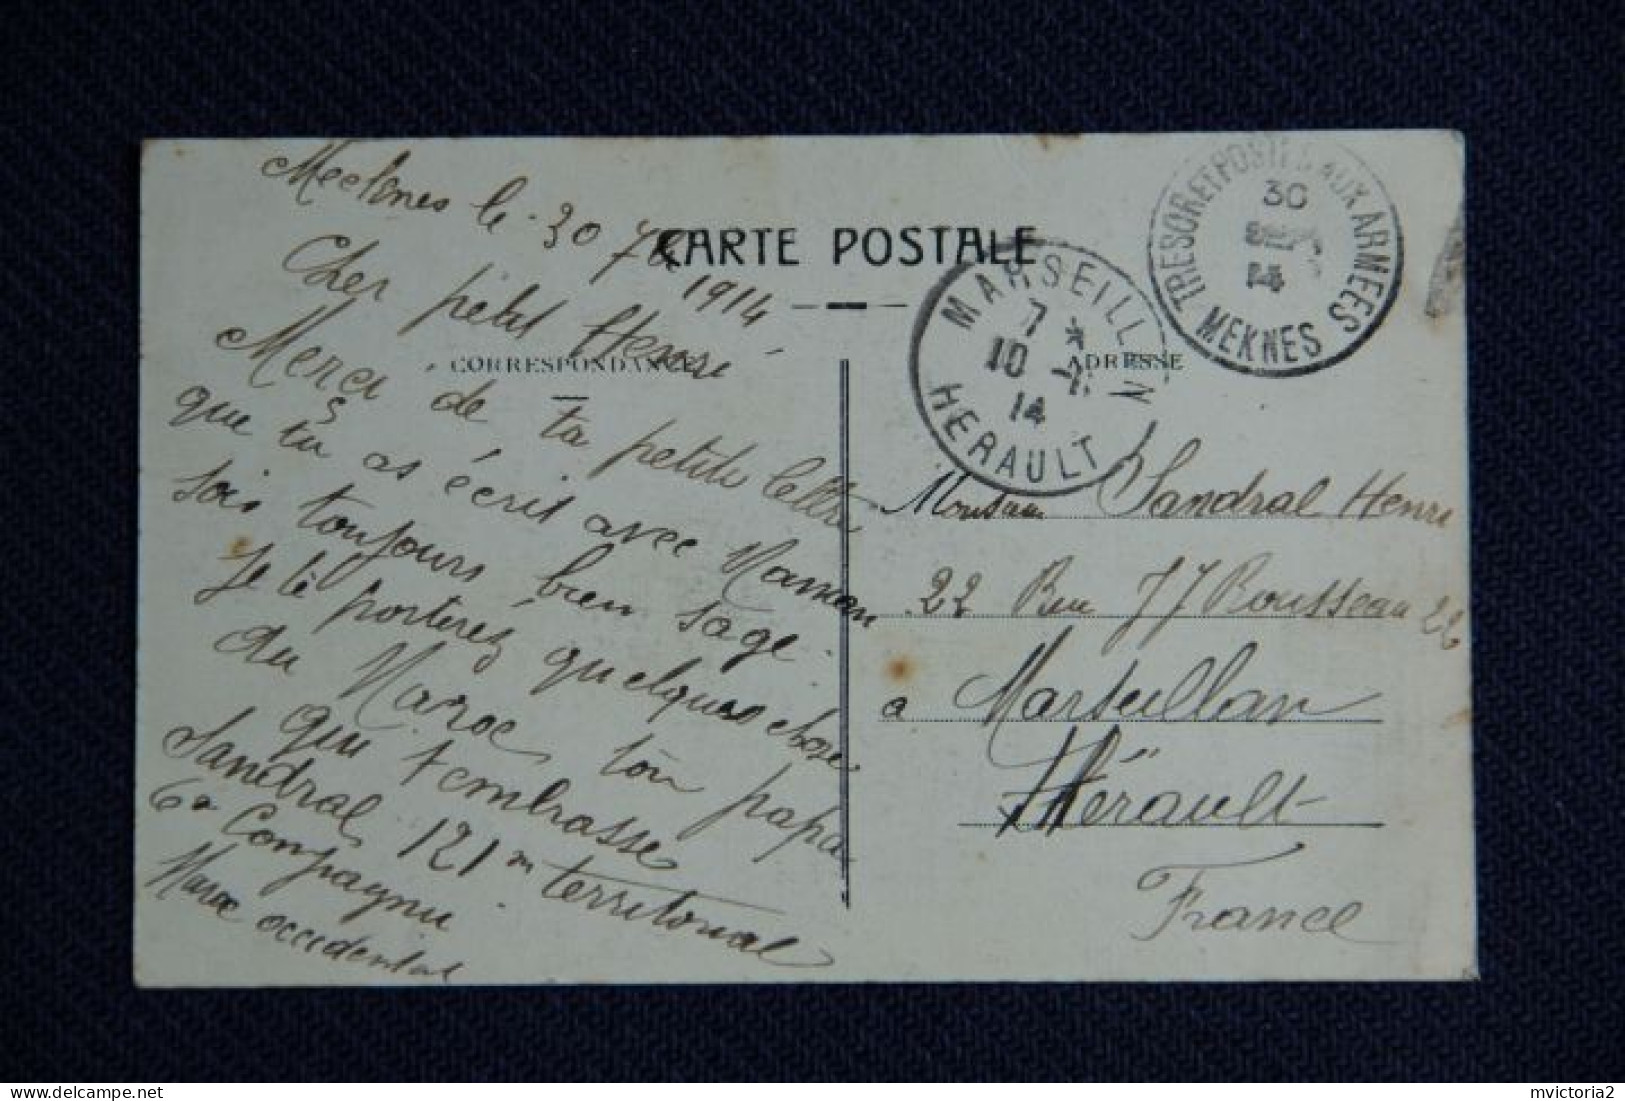 Mecknes le 30 7bre 1914
CARTE POSTALE
Cher petit Henri
CORRESPONDANCE
Merci de ta petite lettre
que tu as écrit avec Maman
sois toujours bien sage.
Je te porterez quelque chose
du Maroc ton papa
qui t'embrasse
Sandral 121m territorial
6e Compagnie
Maroc occidental
TRESOR ET POSTES AUX ARMEES
30
SEPT
14
MEKNES
MARSEILLAN
7 *
10
14
HERAULT
ADRESSE
Monsieur Sandral Henri
22 Rue JJ Rousseau 22
à Marseillan
Hérault
France
mvictoria2